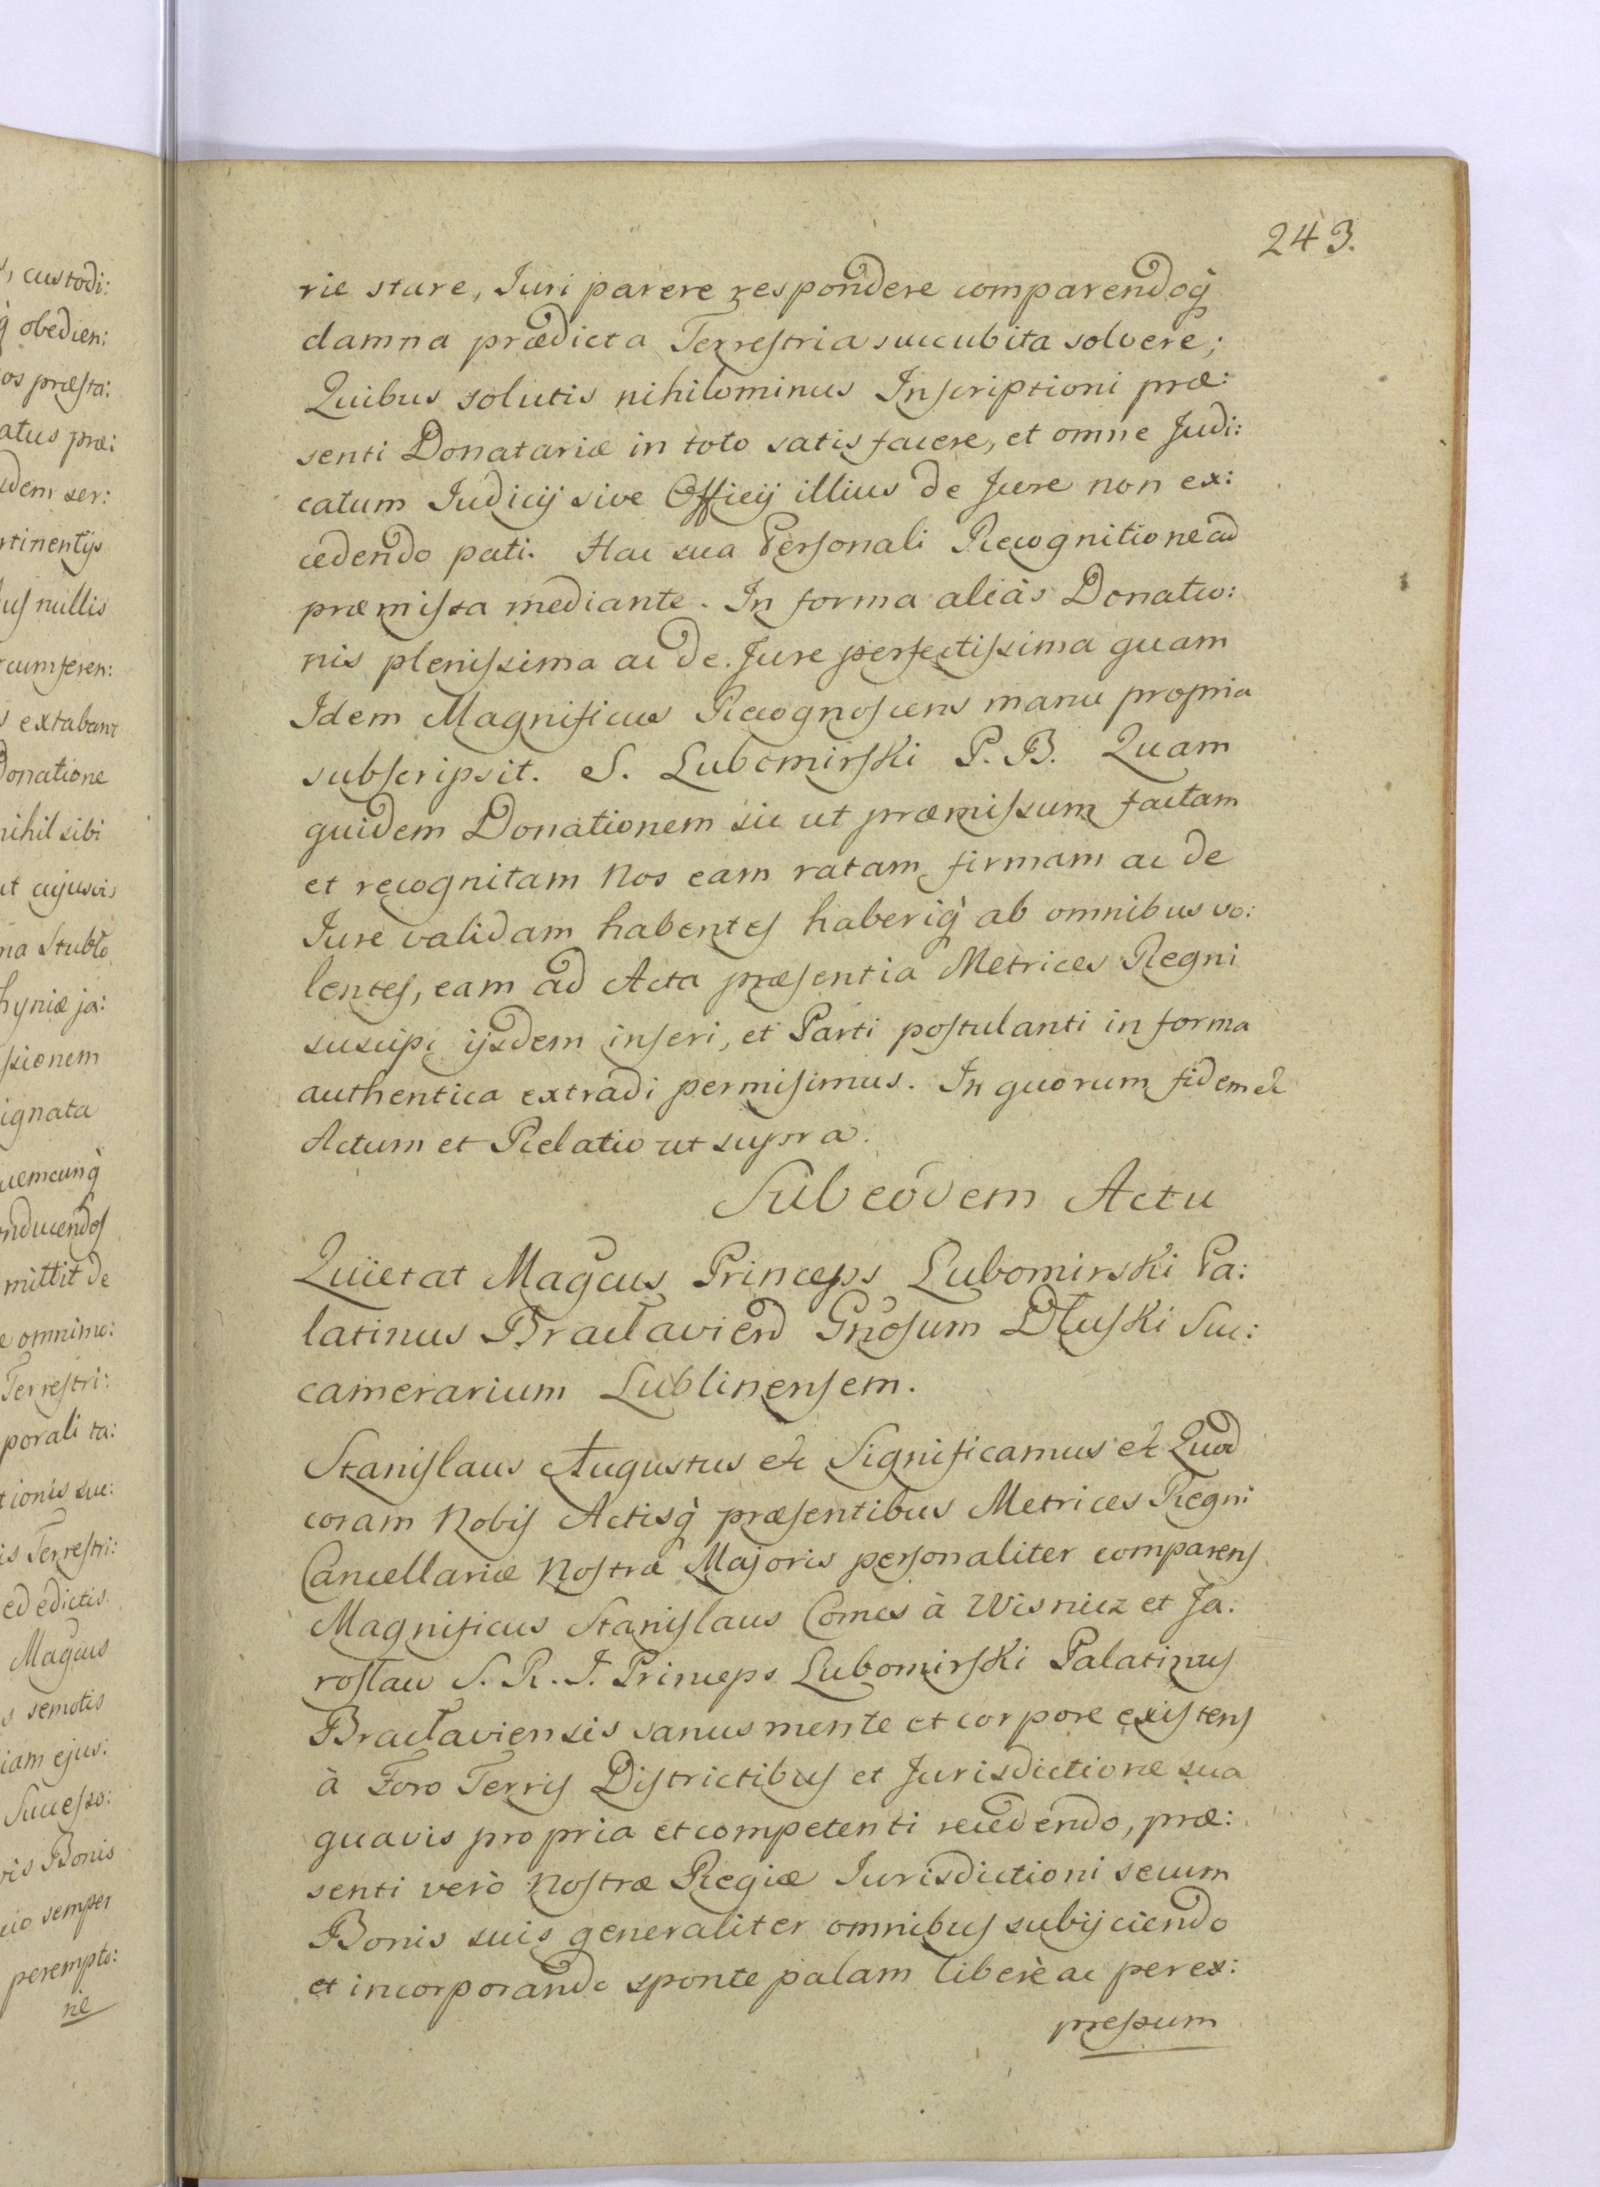 243.
rie stare, Juri parere respondere comparendoq̀
damna prædicta Terrestria succubita solvere;
Quibus solutis nihilominus Inscriptioni præ:
senti Donatariæ in toto satis facere, et omne Judi:
catum Judicij sive Officij illius de Jure non ex:
cedendo pati. Hac sua Personali Recognitione ad
præmissa mediante. In forma aliàs Donatio:
nis plenissima ac de Jure perfectissima quam
Idem Magnificus Recognoscens manu propria
subscripsit. S. Lubomirski P. B. Quam
quidem Donationem sic ut præmissum factam
et recognitam Nos eam ratam firmam ac de
Jure validam habentes haberiq̀ ab omnibus vo:
lentes, eam ad Acta præsentia Metrices Regni
suscipi ijsdem inseri, et Parti postulanti in forma
authentica extradi permisimus. In quorum fidem &
Actum et Relatio ut supra.
Sub eodem Actu
Quietat Magcus Princeps Lubomirski Pa:
latinus Bracłavien Gnosum Dłuski Suc:
camerarium Lublinensem.
Stanislaus Augustus & Significamus & Quod
coram Nobis Actisq̀ præsentibus Metrices Regni
Cancellariæ Nostræ Majoris personaliter comparens
Magnificus Stanislaus Comes à Wisnicz et Ja:
roslau S. R. I. Princeps Lubomirski Palatinus
Bracłaviensis sanus mente et corpore existens
à Foro Terris Districtibus et Jurisdictione sua
quavis propria et competenti recedendo, præ:
senti verò Nostræ Regiæ Jurisdictioni se cum
Bonis suis generaliter omnibus subijciendo
et incorporando sponte palam liberè ac per ex:
pressum